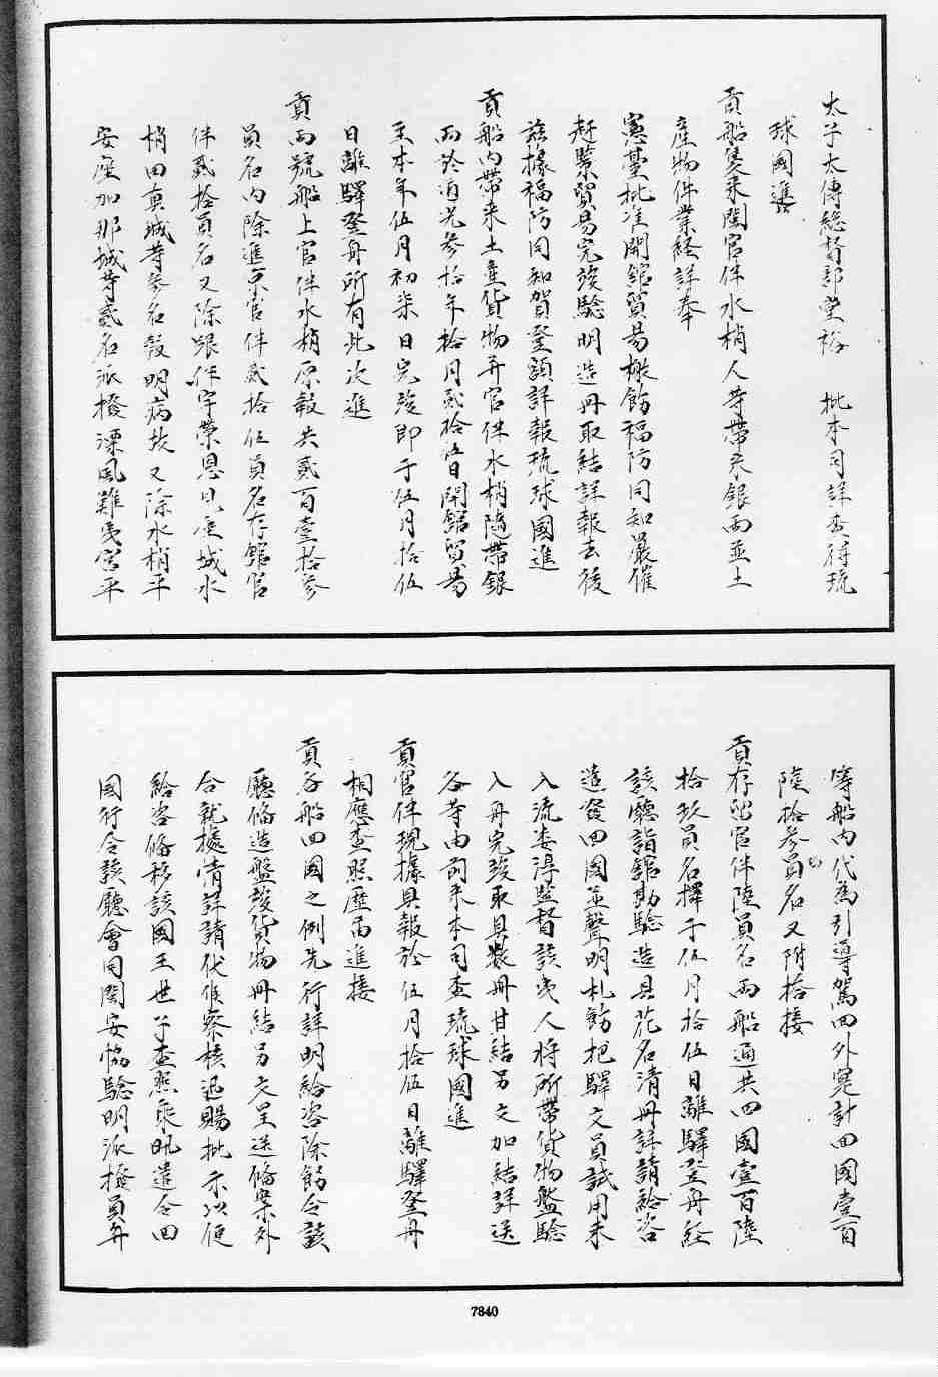 太子太傅總督部堂裕 批本司詳查得琉
球國進
貢船隻來閩官伴水梢人等帶來銀兩並土
產物件業經詳奉
憲臺批准開舘貿易檄飭福防同知嚴催
赶緊貿易完竣驗明造冊取結詳報去後
茲據福防同知賀登額詳報琉球國進
貢船內帶來土產貨物并官伴水梢隨帶銀
兩於道光參拾年拾月貳拾伍日開舘貿易
至本年伍月初柒日完竣即于伍月拾伍
日離驛登舟所有此次進
貢兩號船上官伴水梢原報共貳百壹拾參
員名內除進京官伴貳拾伍員名存舘官
伴貳拾員名又除跟伴宇榮恩見座城水
梢田真城等參名報明病故又除水梢平
安座加那城等貳名派撥漂風難夷宮平
等船內代為引導駕回外寔計回國壹百
陸拾參員名又附搭接
貢存留官伴陸員名兩船通共回國壹百陸
拾玖員名擇于伍月拾伍日離驛登舟經
該廳詣舘勘驗造具花名清冊詳請給咨
遣發回國並聲明札飭把驛文員試用未
入流婁淳監督該夷人將所帶貨物盤驗
入舟完竣取具數冊甘結另文加結詳送
各等由前來本司查琉球國進
貢官伴現據具報於伍月拾伍日離驛登舟
相應查照歷屆進接
貢各船回國之例先行詳明給咨除飭令該
廳俻造盤驗貨物冊結另文呈送俻案外
合就據情詳請伏候察核迅賜批示以便
給咨俻移該國王世子查照乘汛遣令回
國行令該廳會同閩安協驗明派撥員弁
7840